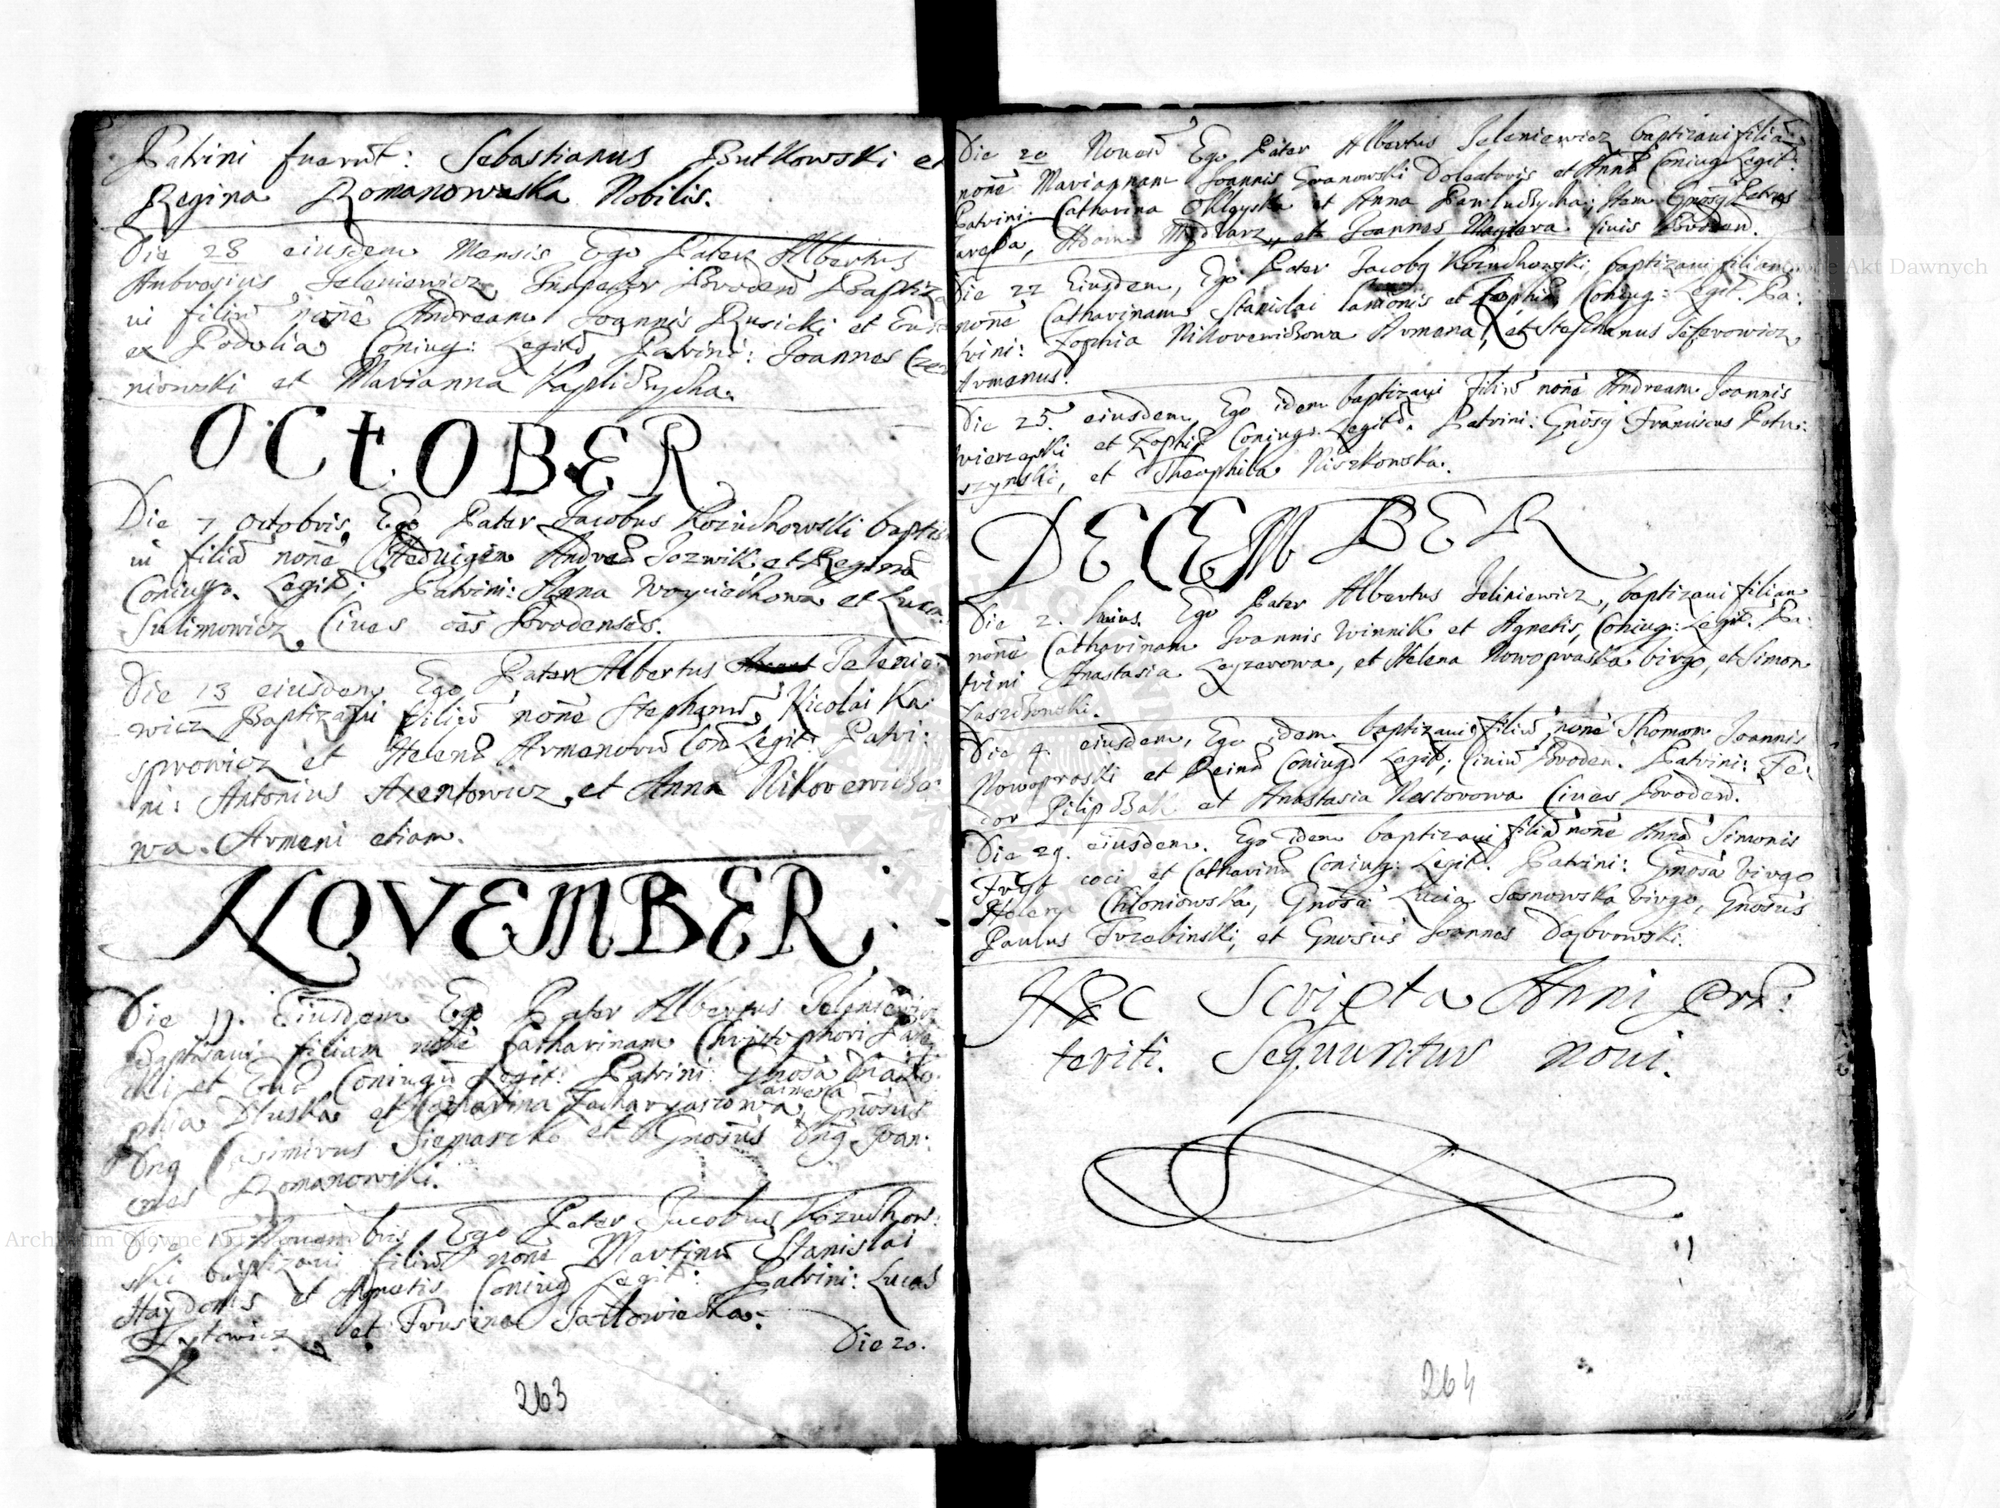 Patrini fuerũt: Sebastianus Butkowski et
Regina Romanowska Nobilis.
Die 28 eiusdem Mensis Ego Pater Albertus
Ambrosius Jeleniewicz Brodeñ Baptiza
ui filiũ noñe Andream Joannis Rusicki et
ex Podolia Coniug: Legitᵒ. Patrini: Joannes
niowski et Marianna
OCtOBER
Die 7 Octobris, Ego Pater Jacobus Kozuchowski baptiza
ui filiã noñe Heduigim Andreæ Jozwik et Reginæ
Coniugũ. Legitᵒ; Patrini: Anna Woyciechowa et Lucas
Sulimowicz Ciues oẽs Brodenses.
Die 13 eiusdem Ego Pater Albertus Jelenie:
wicz Baptizaui filiũ noñe Stephanũ, Nicolai Kai
sprowicz et Helenæ Armenorũ Con Legit: Patri:
ni: Antonius Axentowicz, et Anna Nikorewiczo:
wa. Armeni etiam.
NOVEMBER.
Die 11. Eiusdem Ego Pater Albertus Jeleniewicz
Baptizaui filiam noñe Catharinam Christophori
cki et Euæ Coniugũ Legit: Patrini: Gnosa
phia Dłuska et Catharina Zacharyaszowa armena, Gnosus
Dnꝰ Casimirus et Gnosus Dnꝰ Joan:
nes Romanowski.
Die Nouembris Ego Pater Jacobus Kozuchow:
ski baptizaui filiũ noñe Martinũ Stanislai
et Agnetis Coniug Legit: Patrini: Lucas
et
Die 20.
263
Die 20 Noueñ Ego Pater Albertus Jeleniewicz baptizaui filiã
noñe Mariannam Joannis Iwanowski Doleatoris et Annæ Coniug Legit:
Patrini: Catharina et Anna Item Gnosꝰ Petrus
Adam Mydlarz, et Joannes Magiera Ciuis Brodeñ.
Die 22 Eiusdem, Ego Pater Jacobꝰ Kozuchowski, baptizaui filiam
noñe Catharinam Stanislai Lanionis et Zophiæ Coniug: Legit. Pa:
trini: Zophia Nikorewiczowa Armena, et Stephanus Seferowicz
Armenus.
Die 25. eiusdem, Ego idem baptizaui filiũ noñe Andream Joannis
et Zophiæ Coniugũ Legitᵒ. Patrini: Gnosꝰ Franciscus
szynski, et Theophila Niszkowska.
DECEMBER
Die 2. huius. Ego Pater Albertus Jeliniewicz, baptizaui filiam
noñe Catharinam Joannis Winnik et Agnetis, Coniug: Legit: Pa:
trini Anastasia Leyzerowa, et Helena Nowopraska virgo, et Simon
Laszchowski.
Die 4. eiusdem, Ego idem baptizaui filiũ noñe Thomam Joannis
Nowopraski et Coniugũ Legit; Ciuiũ Brodeñ. Patrini: Fe:
dor et Anastasia Nestorowa Ciues Brodeñ.
Die 29. eiusdem. Ego idem baptizaui filiã noñe Annã Simonis
coci et Catharinæ Coniug: Legitᵒ. Patrini: Gnosa Virgo
Helena Chłoniowska, Gnosa Lucia Sosnowska Virgo, Gnosus
Paulus Trzebinski, et Gnosus Joannes Dąbrowski.
Hæc Scripta Anni Præ:
teriti. Sequuntur noui.
264
Archiwum Główne Akt Dawnych